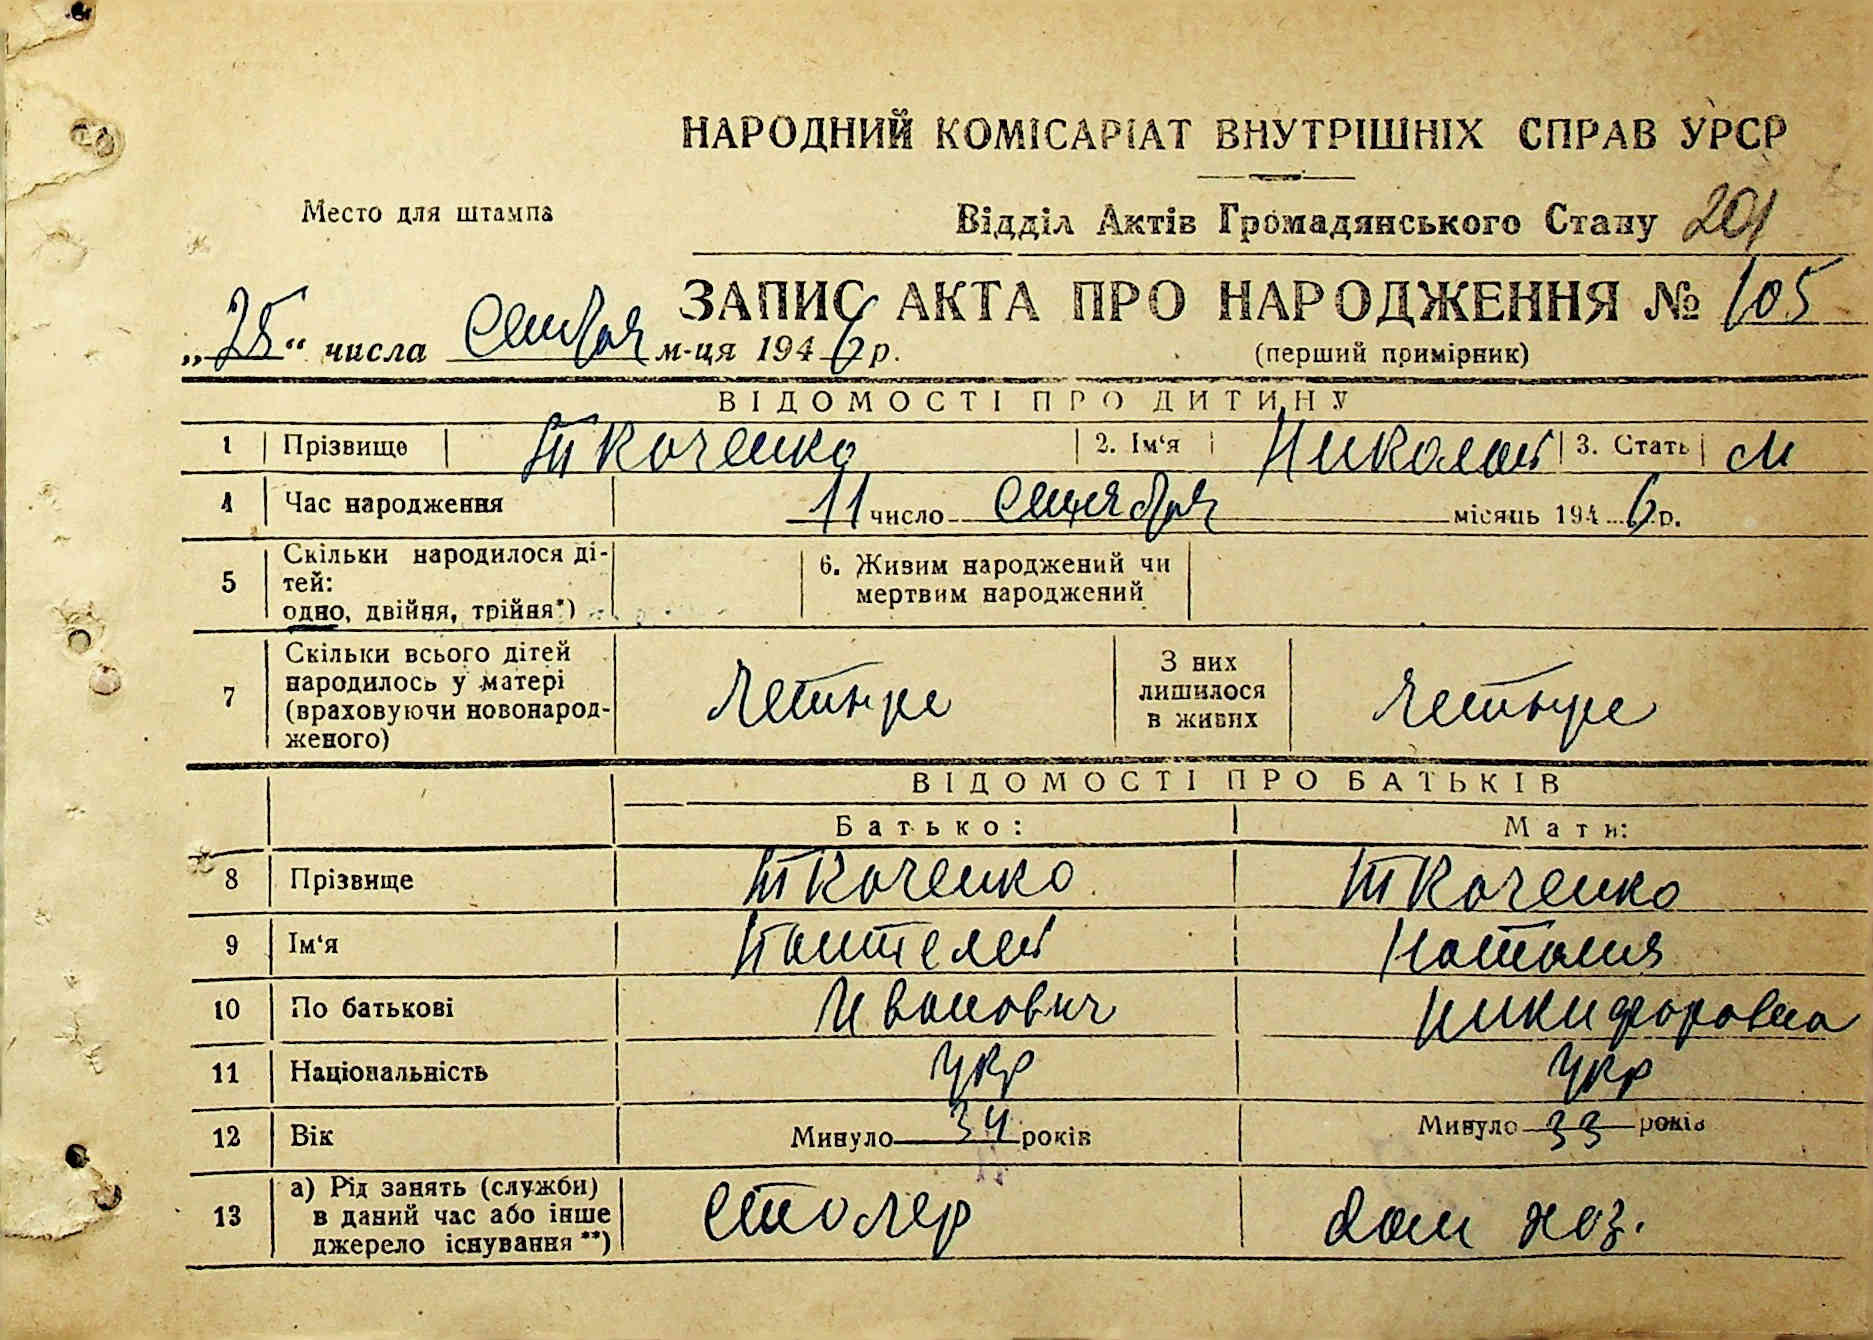 НАРОДНИЙ КОМІСАРІАТ ВНУТРІШНІХ СПРАВ УРСР
Место для штампа
Відділ Актів Громадянського Стану 201
ЗАПИС АКТА ПРО НАРОДЖЕННЯ № 105
„25“ числа Сентября м-ця 1946 р.
(перший примірник)
ВІДОМОСТІ ПРО ДИТИНУ
1 Прізвище Ткаченко 2. Ім‘я Николай 3. Стать м
4 Час народження 11 число Сентября місяць 1946 р.
5 Скільки народилося ді-
тей:
одно, двійня, трійня*)
6. Живим народжений чи
мертвим народжений
7 Скільки всього дітей
народилось у матері
(враховуючи новонарод-
женого)
Четыре
З них
лишилося
в живих
Четыре
ВІДОМОСТІ ПРО БАТЬКІВ
Батько: Мати:
8 Прізвище Ткаченко Ткаченко
9 Ім‘я Пантелей Наталия
10 По батькові Иванович Никифоровна
11 Національність Укр Укр
12 Вік Минуло 34 років Минуло 33 років
13 а) Рід занять (служби)
в даний час або інше
джерело існування **)
Столяр дом хоз.